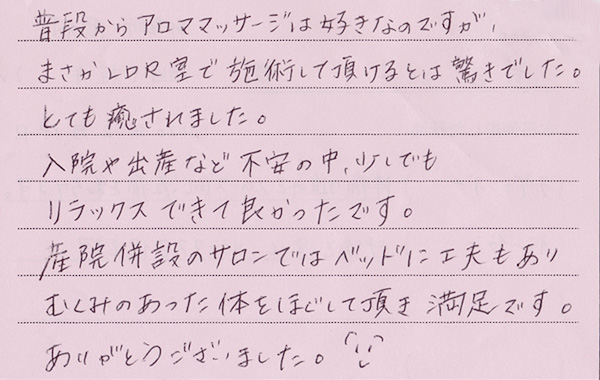 普段からアロママッサージは好きなのですが、
まさかLDR室で施術して頂けるとは驚きでした。
とても癒されました。
入院や出産など不安の中、少しでも
リラックスできて良かったです。
産院併設のサロンではベッドに工夫もあり
むくみのあった体をほぐして頂き満足です。
ありがとうございました。